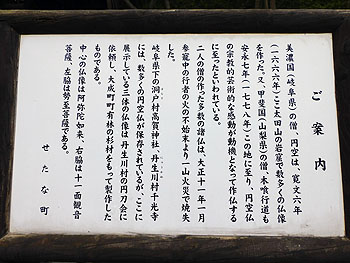 ご案内
美濃国(岐阜県)の僧、円空は、寛文六年
(一六六六年)ここ太田山の岩窟で数多くの仏像
を作った。又、甲斐国(山梨県)の僧、木喰行道も
安永七年(一七七八年)この地に至り、円空仏
の宗教的芸術的な感動が動機となって作仏する
に至ったといわれている。
二人の僧の作った多数の諸仏は、大正十一年一月
参籠中の行者の火の不始末より一山火災で焼失
した。
岐阜県下の洞戸村高賀神社、丹生川村千光寺
には、数多くの円空仏が保存されているが、ここに
展示している三体の仏像は丹生川村の円刀会に
依頼し、大成町町有林の杉材をもって製作した
ものである。
中心の仏像は阿弥陀如来、右脇は十一面観音
菩薩、左脇は勢至菩薩である。
せたな町